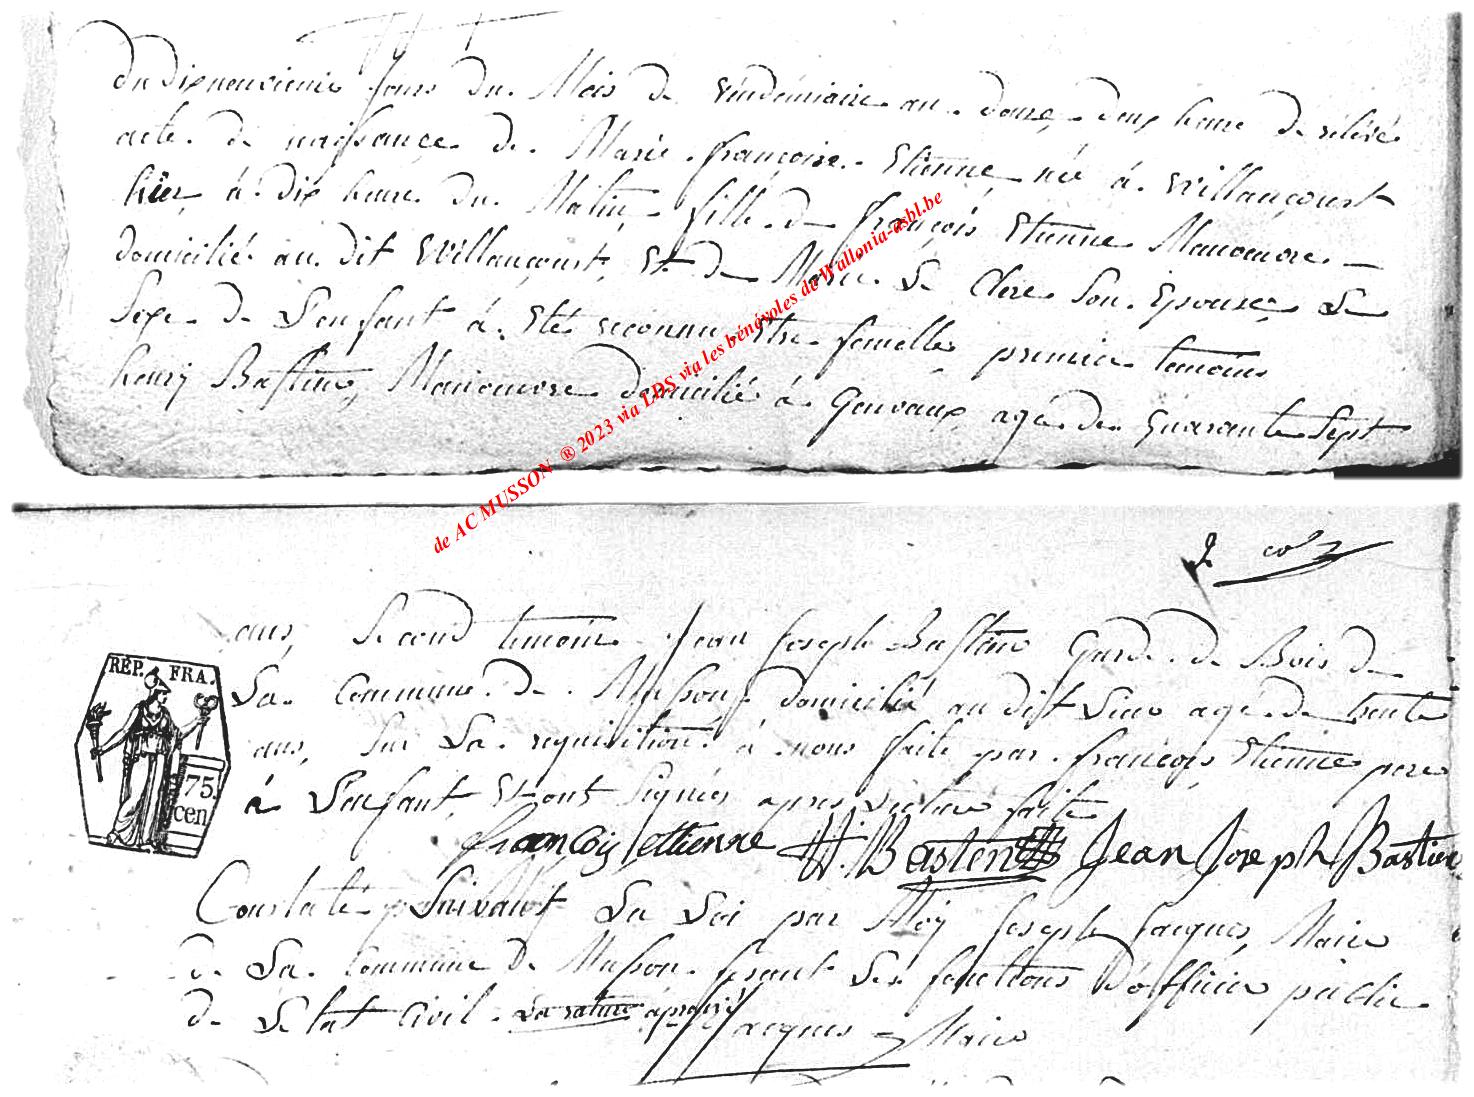 du dixneuvieme Jours du Mois de vendemiaire an douze deux heure de relévé
acte de naissance de Marie françoise Etienne née à Willancourt
hier à dix heure du Matin fille de françois Etienne Manoeuvre
domicilié au dit Willancourt, Et de Marie Le Clere Son Epouse, Le
Sexe de L'enfant à Eté reconnu Etre femelle premier temoins
henry Bastin, Manoeuvre domicilié à Gorvaux agé de quarante Sept
de AC MUSSON ® 2023 via LDS via les bénévoles de Wallonia-asbl.be
ans, Second temoin Jean Joseph Bastin Garde de Bois de
RÉP. FRA.
La Commune de Musson domicilié au dit Lieu agé de trente
ans, Sur La requisition à nous faite par françois Etienne pere
75.
cen
à L'enfant, Et ont Signés apres Lecture faite
francois ettienne H. Bastien Jean Joseph Bastien
Constaté Suivant La Loi par Aloÿ Joseph Jacques, Maire
de La Commune de Musson fesant Les fonctions D'officier public
de L'etat Civil. La rature aprouvé Jacques Maire